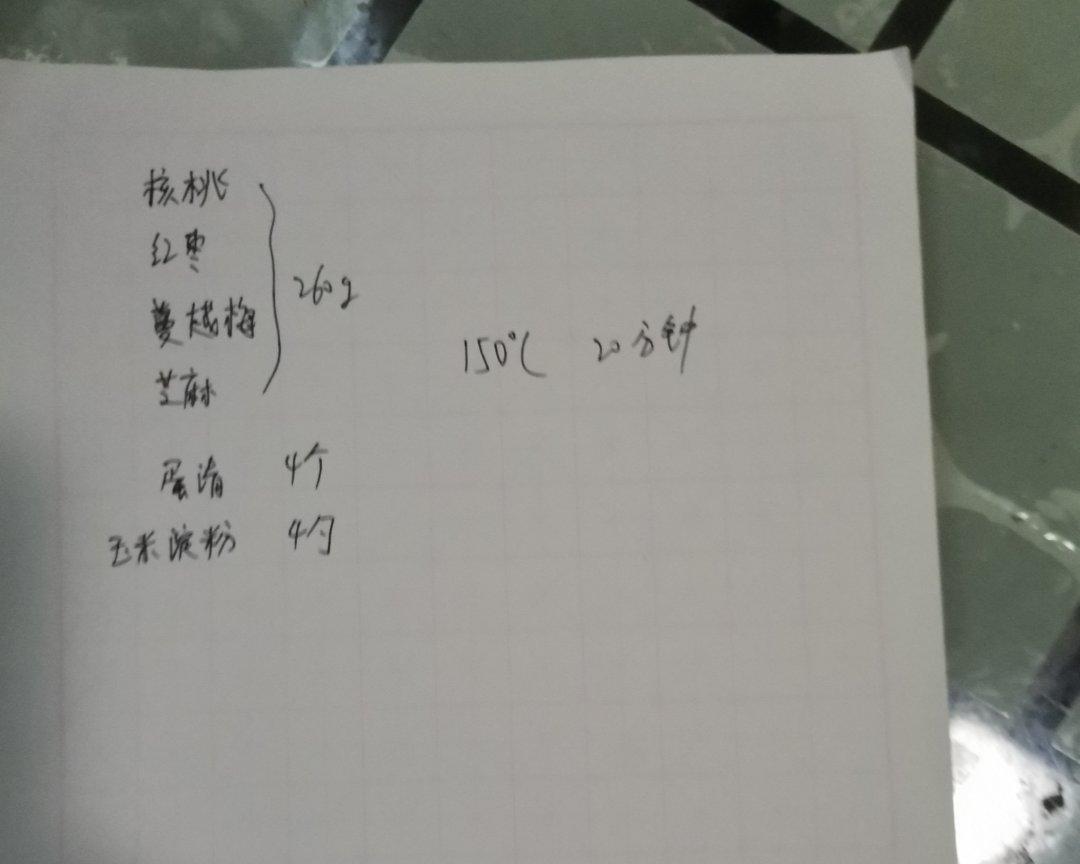 核桃
红枣
蔓越梅
芝麻
260g
150℃ 20分钟
蛋清 4个
玉米淀粉 4勺